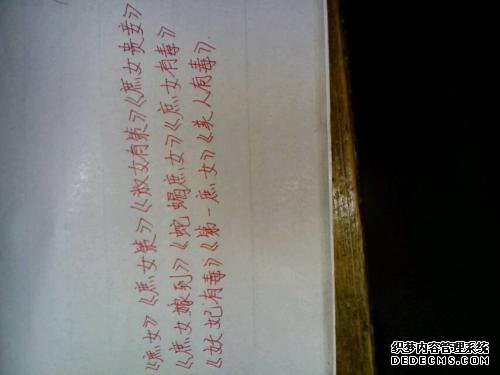 《庶女》《庶女策》《淑女有策》《庶女贵妾》
《庶女嫁到》《蛇蝎庶女》《庶女有毒》
《妖妃有毒》《第一庶女》《美人有毒》
织梦内容管理系统
DEDECMS.COM